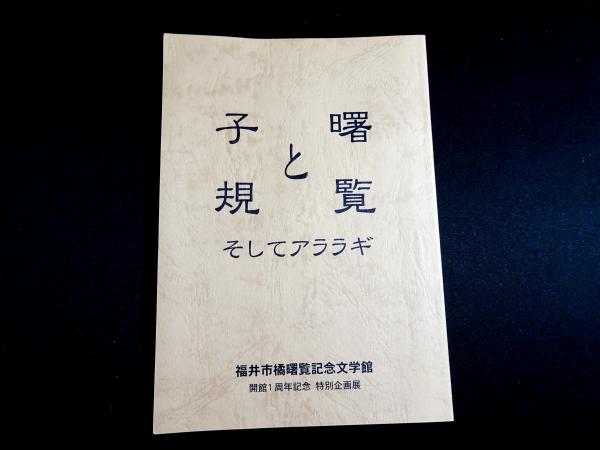 曙覧
と
子規
そしてアララギ
福井市橘曙覧記念文学館
開館1周年記念 特別企画展